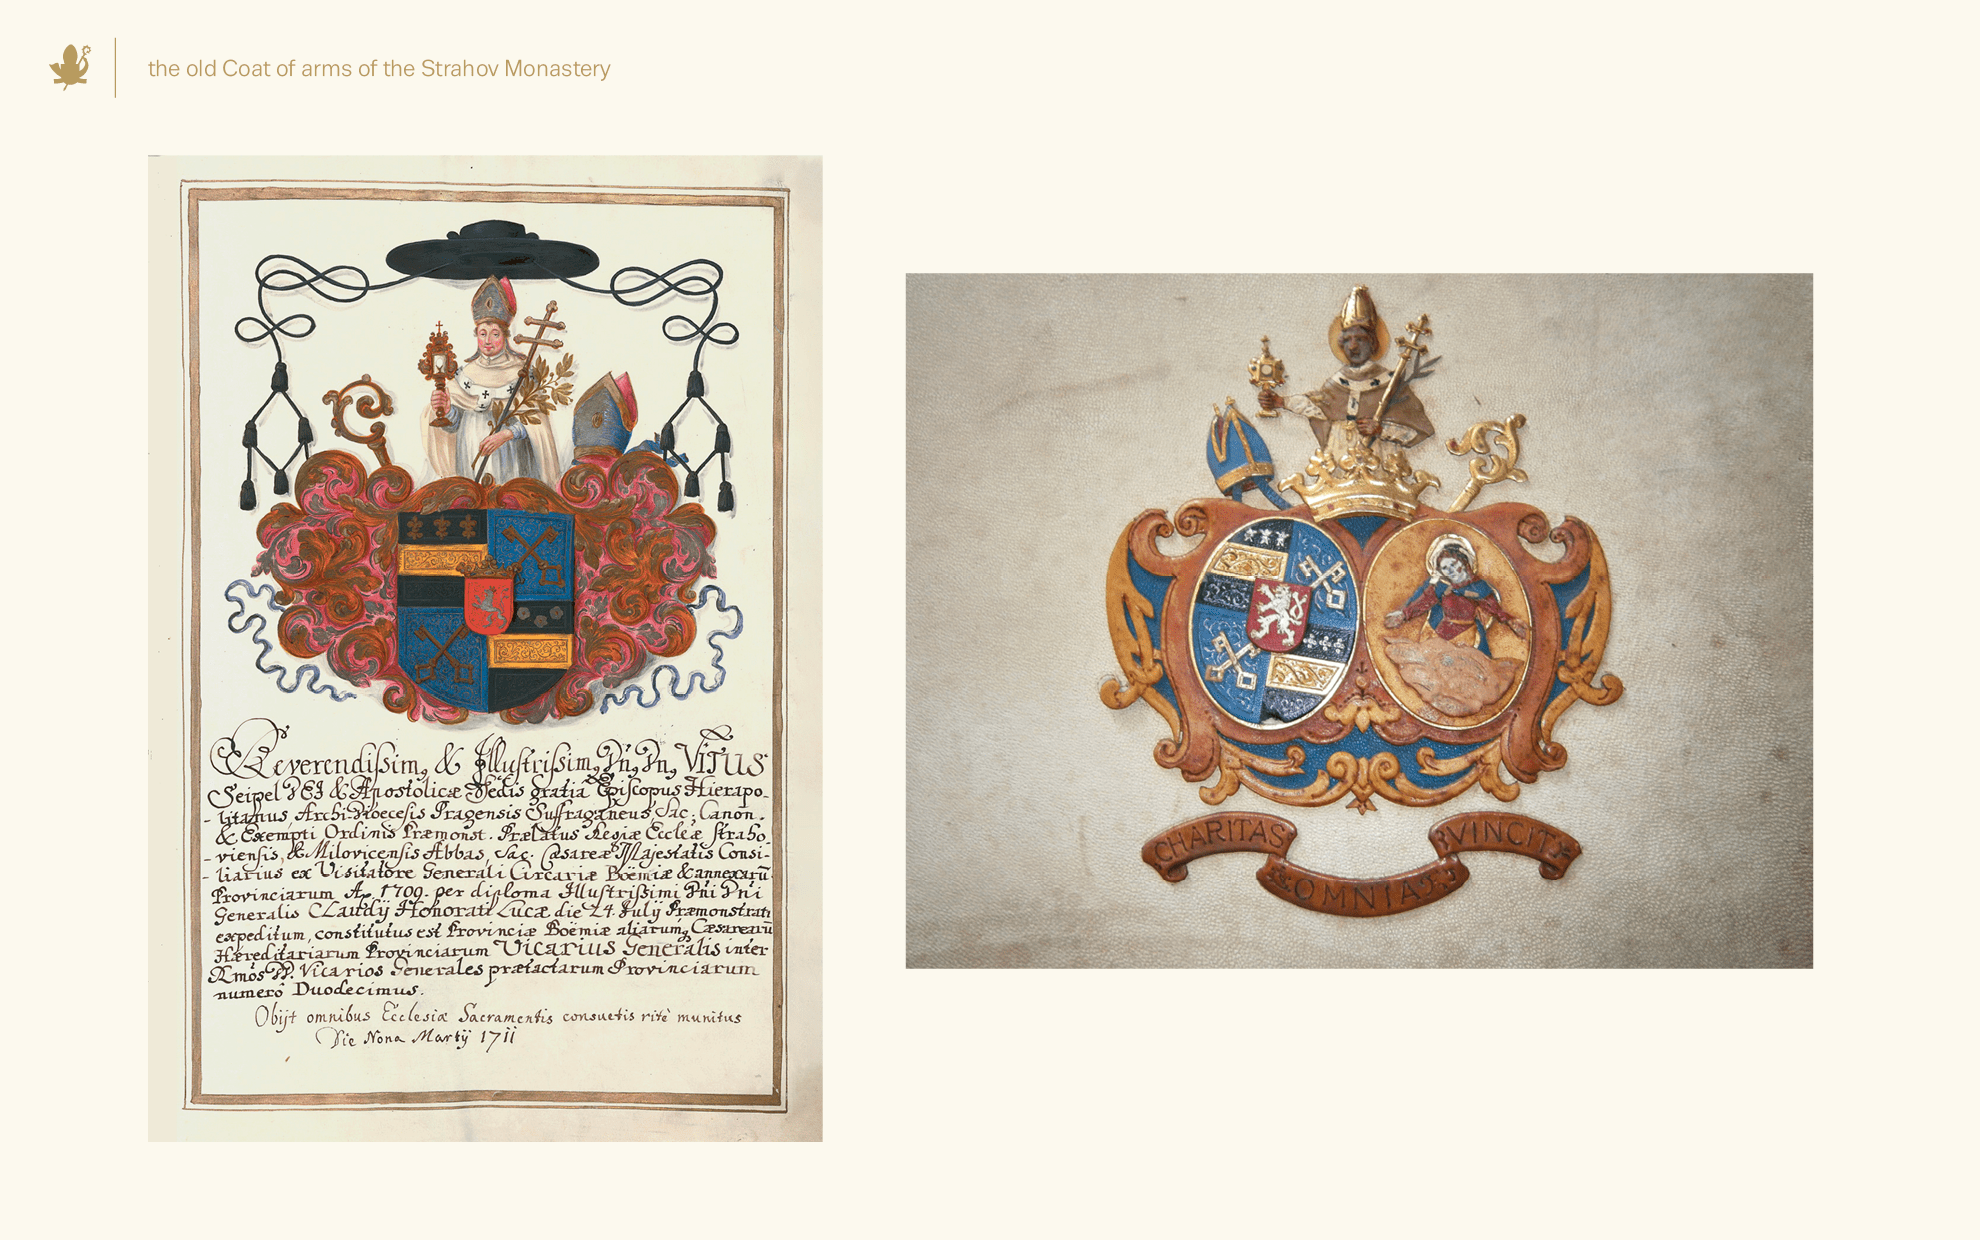 the old Coat of arms of the Strahov Monastery
Reverendissim, & Illustrissim, Dn, Dn, VITUS
Seipel DEI & Apostolicæ Sedis gratia Episcopus Hierapo-
-litanus, Archi-Dioecesis Pragensis Suffraganeus, Sac: Canon.
& Exempti Ordinis Præmonst. Prælatus Regiæ Eccleæ Straho
-viensis, & Milovicensis Abbas, Sac. Cæsareæ Majestatis Consi-
-liarius ex Visitatore Generali Circariæ Boëmiæ & annexarū
Provinciarum Ao. 1709. per diploma Illustrissimi Dni Dni
Generalis CLaudÿ Honorati Lucæ die 24. Julÿ Præmonstrati
expeditum, constitutus est Provinciæ Boëmiæ aliarumq Cæsarearū
Hæreditariarum Provinciarum Vicarius Generalis inter
Rmos Vicarios Generales præfactarum Provinciarum
numerô Duodecimus.
Obijt omnibus Ecclesiæ Sacramentis consuetis ritè munitus
Die Nona Martÿ 1711
CHARITAS VINCIT
OMNIA